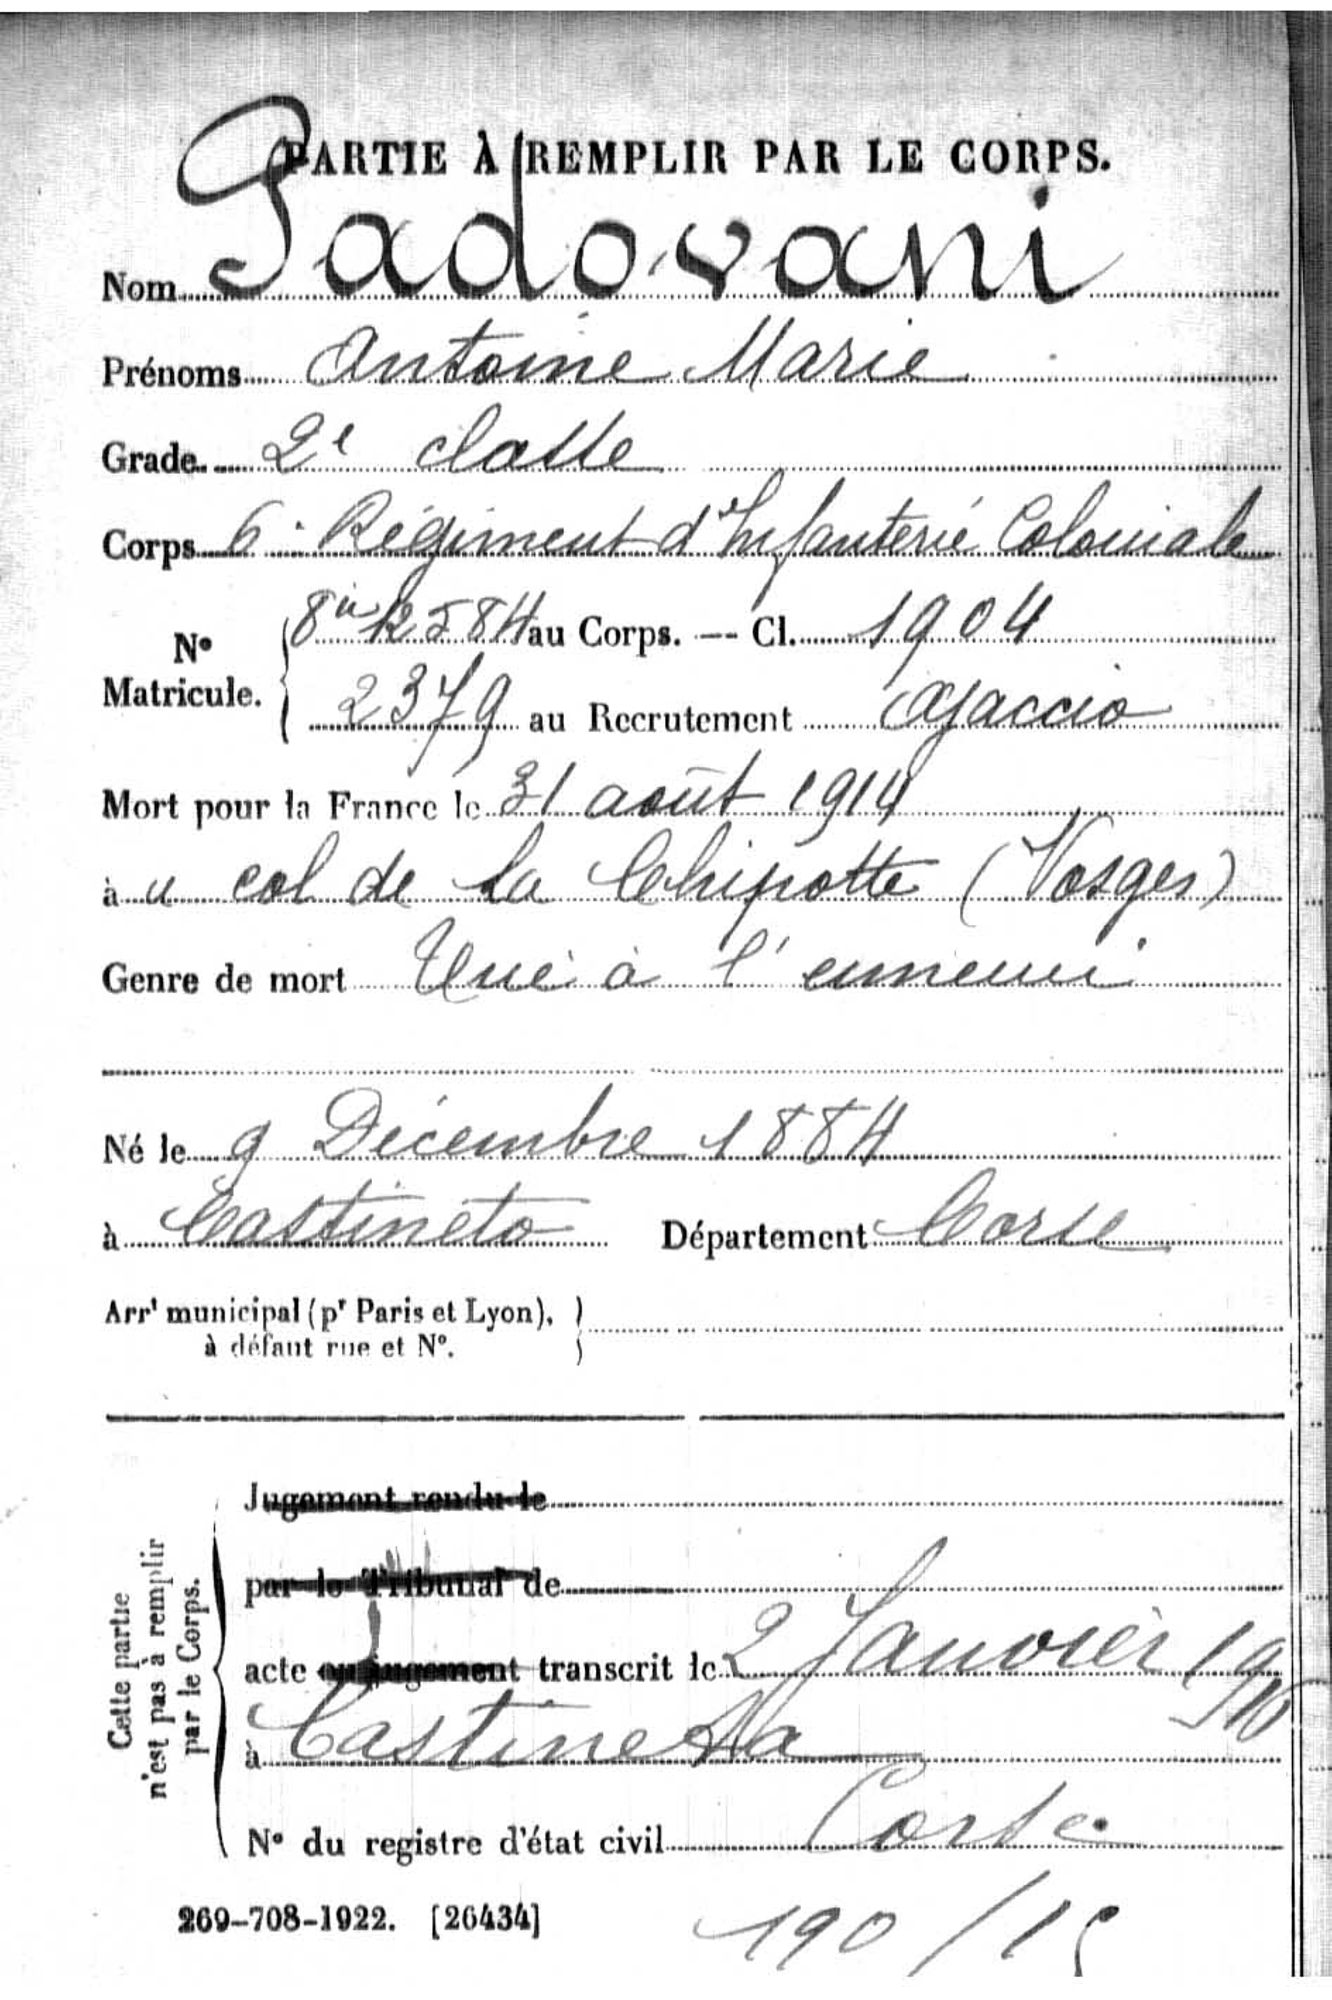 PARTIE À REMPLIR PAR LE CORPS.
Nom Padovani
Prénoms Antoine Marie
Grade 2e classe
Corps 6e Régiment d'Infanterie Coloniale
No Matricule. 12584 au Corps. — Cl. 1904
2379 au Recrutement Ajaccio
Mort pour la France le 31 août 1914
à u col de La Chipotte (Vosges)
Genre de mort Tué à l'ennemi
Né le 9 Décembre 1884
à Castineto Département Corse
Arrt municipal (pr Paris et Lyon),
à défaut rue et No.
Cette partie
n'est pas à remplir
par le Corps.
Jugement rendu le
par le Tribunal de
acte ou jugement transcrit le 2 Janvier 1916
à Castineta
Corse
No du registre d'état civil
269-708-1922. [26434]
190/15